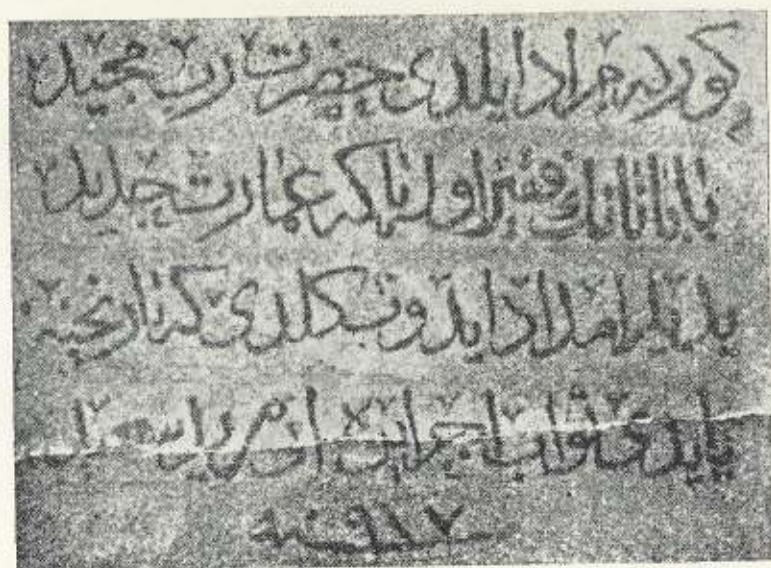 کور نه مراد ایلدی حضرت رب مجید
بابا نانک فقیر اوله تا که عمارت جدید
یدیلر امداد ایدوب کلدی که تاریخینه
یاپدی ثواب اجر ایدن انی مرید سعید
سنه ٩١٧